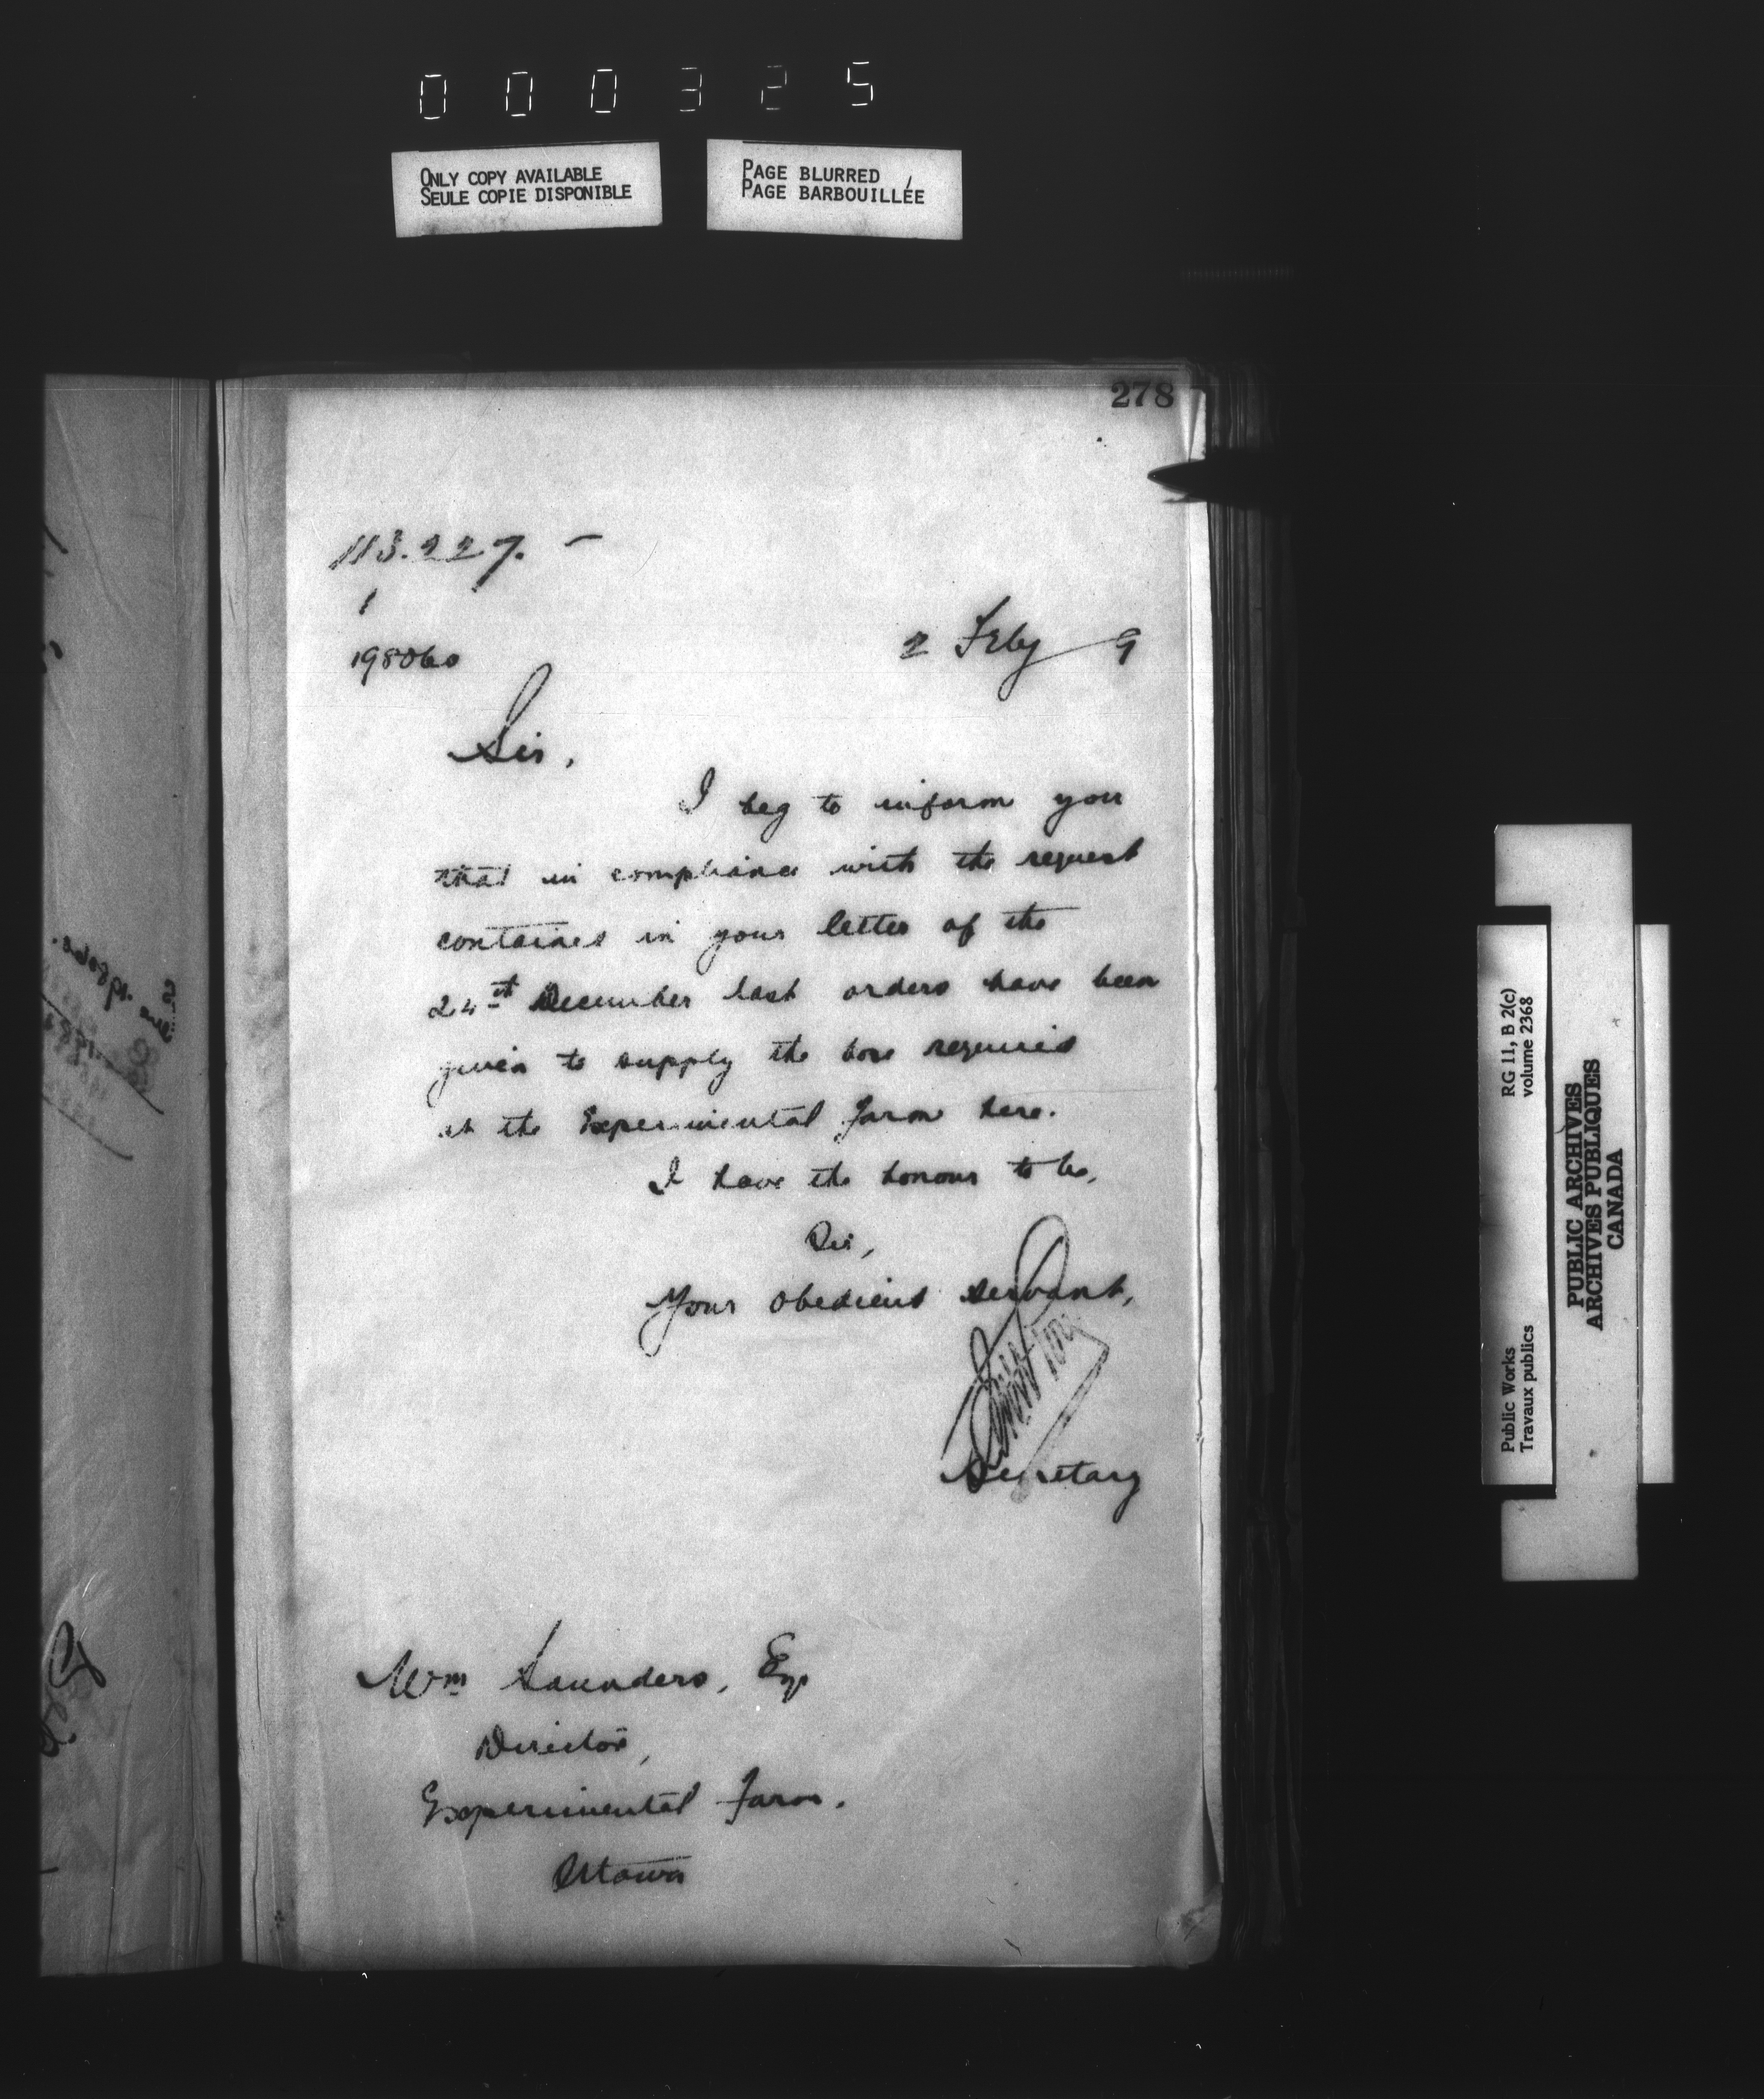 000325
ONLY COPY AVAILABLE
SEULE COPIE DISPONIBLE
PAGE BLURRED
PAGE BARBOUILLÉE
278
113.227. –
1
198060
2 Feby 9
Sir,
I beg to inform you
that in compliance with the request
contained in your letter of the
24th December last orders have been
given to supply the hose required
at the Experimental Farm here.
I have the honour to be,
Sir,
Your obedient servant,
Secretary
Wm Saunders, Esq
Director,
Experimental Farm.
Ottawa
Public Works
Travaux publics
RG 11, B 2(c)
volume 2368
PUBLIC ARCHIVES
ARCHIVES PUBLIQUES
CANADA